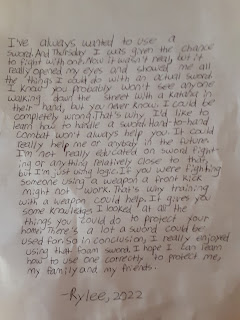 I've always wanted to use a
sword. And Thursday I was given the chance
to fight with one. Now it wasn't real, but it
really opened my eyes and showed me all
the things I could do with an actual sword.
I know you probably won't see anyone
walking down the street with a katana in
their hand, but you never know. I could be
completely wrong. That's why I'd like to
learn how to handle a sword. Hand-to-hand
combat won't always help you. It could
really help me or anybody in the future.
I'm not really educated on sword fight-
ing or anything relatively close to that,
but I'm just using logic. If you were fighting
someone using a weapon a front kick
might not work. That's why training
with a weapon could help. It gives you
some knowledge. Looked at all the
things you could do to protect your
home. There's a lot a sword could be
used for. So in conclusion, I really enjoyed
using that foam sword. I hope I can learn
how to use one correctly to protect me,
my family and my friends.
-Rylee, 2022